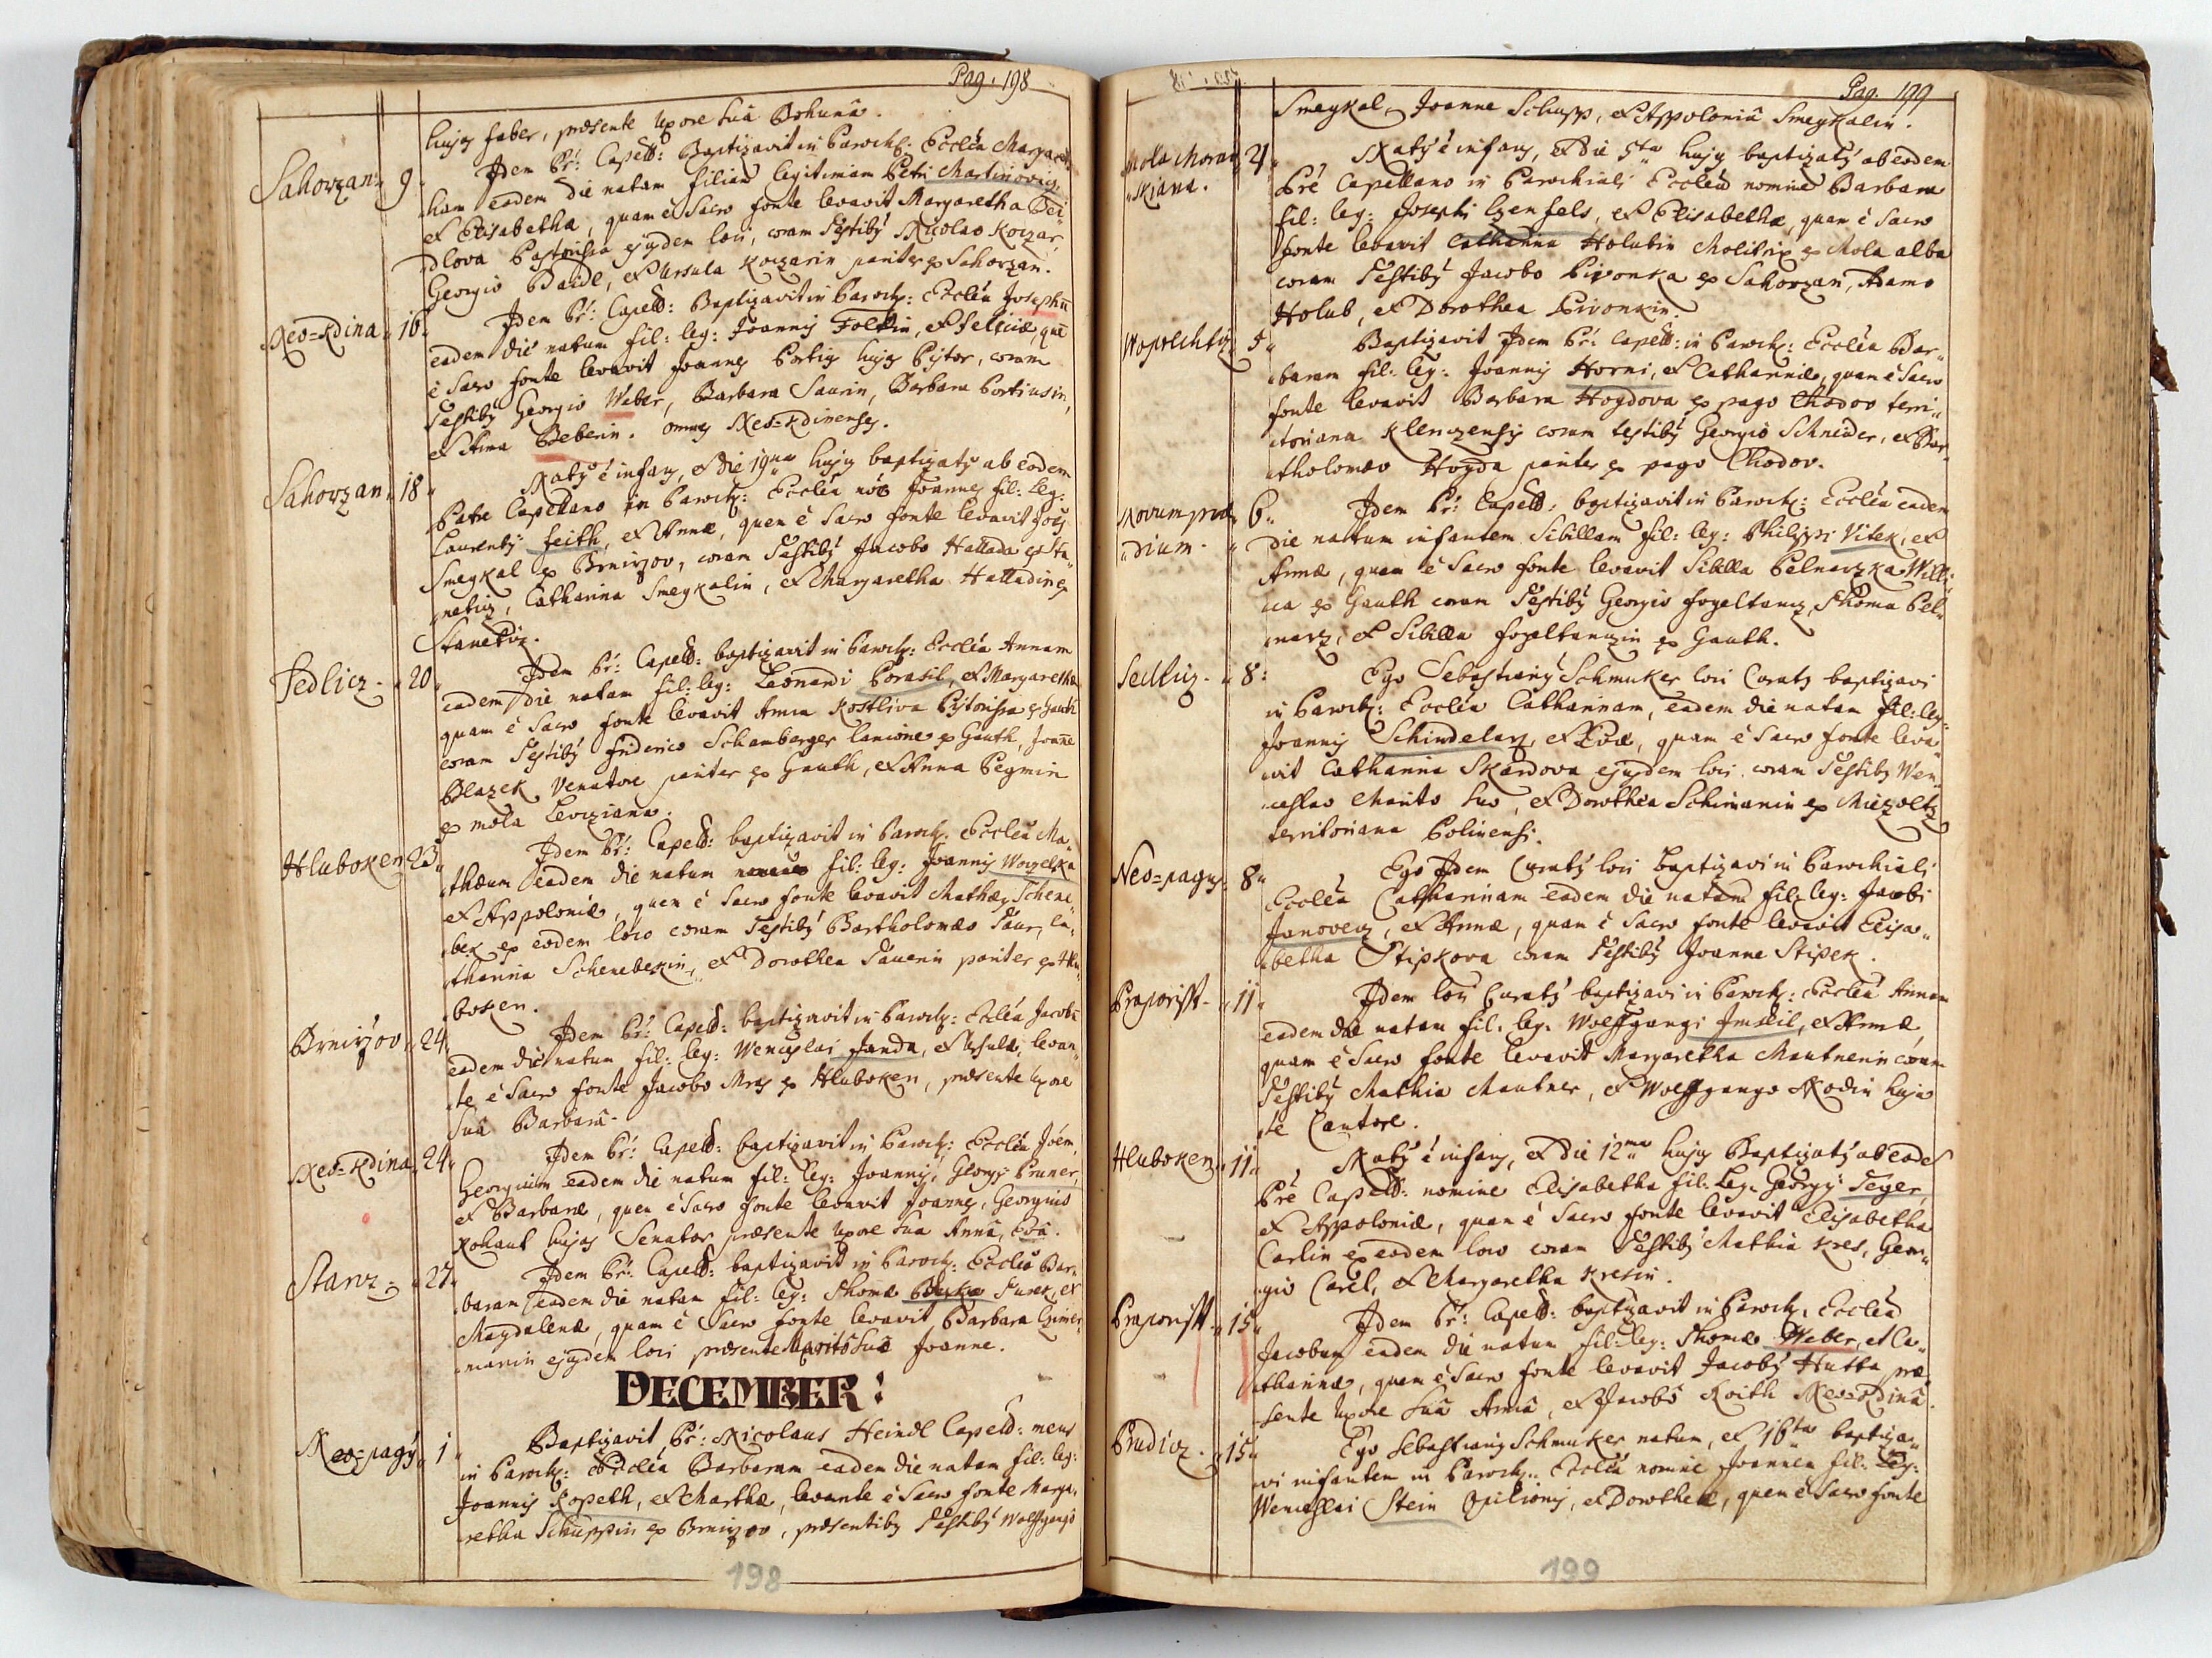 Pag. 198
hujus faber, præsente uxore suâ Bohunâ.
Sahorzan. 9. Idem Pr: Capell: Baptizavit in Paroch: Ecclia Margaret-
ham eadem die natam filiam legitimam Petri Martinovicz,
et Elisabetha, quam è Sacro fonte levavit Margaretha
dlova Pastorissa ejusdem loci, coram Testibus Nicolao Koczar,
Georgio Baudl, et Ursula Koczarin pariter ex Sahorzan.
Neo=Kdina. 16. Idem Pr: Capell: Baptizavit in Paroch: Ecclia Josephũ
eadem die natum fil: leg: Joannis Foltin, et Feliciæ, quẽ
è Sacro fonte levavit Joannes Portig hujus Pistor, coram
Testibus Georgio Weber, Barbara Saurin, Barbara Portiusin,
et Anna Beberin. omnes Neo=Kdinenses.
Sahorzan. 18. Natus è infans, et die 19na hujus baptizatus ab eodem
Patre Capellano in Paroch: Ecclia Joannes fil: Leg:
Laurentii Feith, et Annæ, quem è Sacro fonte levavit Joẽs
Smeykal ex Brnirzov, coram Testibus Jacobo Hallada ex Sta-
netiz, Catharina Smeykalin, et Margaretha Halladin ex
Stanetiz.
Sedlicz. 20. Idem Pr: Capell: baptizavit in Paroch: Ecclia Annam
eadem die natam fil: leg: Leonardi Porasil, et Margaretha
quam è Sacro fonte levavit Anna Kostliva Pistorissa ex Gauth
coram Testibus Friderico Schamberger Lanione ex Gauth, Joanne
Blazek Venatore pariter ex Gauth, et Anna Pegmin
ex mola Levziana.
Hluboken 23. Idem Pr: Capell: baptizavit in Paroch: Ecclia Ma-
thæum eadem die natum fil: leg: Joannis Wozelka
et Appoloniæ, quem è Sacro fonte levavit Mathæus Schene-
bek ex eodem loco coram Testibus Bartholomæo Saur, Ca-
tharina Schenebekin, et Dorothea Sauerin pariter ex Hlu-
boken.
Brnirzov. 24. Idem Pr: Capell: baptizavit in Paroch: Ecclia Jacobũ
eadem die natum fil: leg: Wenceslai Janda, et Ursulæ, levan-
te è Sacro fonte Jacobo Mras ex Hluboken, præsente uxore
suâ Barbarâ.
Neo=Kdina. 24. Idem Pr: Capell: baptizavit in Paroch: Ecclia Joẽm,
Georgium eadem die natum fil: leg: Joannis, Georgii Pruner,
et Barbaræ, quem è Sacro fonte levavit Joannes, Georgius
Kohaut hujus Senator præsente uxore sua Annâ, Evâ.
Starz. 27. Idem Pr: Capell: baptizavit in Paroch: Ecclia Bar-
baram eadem die natam fil: leg: Thomæ Furek, et
Magdalenæ, quam è Sacro fonte levavit Barbara Czimer-
manin ejusdem loci præsente Marito Suo Joanne.
DECEMBER:
Neo=pagus 1. Baptizavit Pr: Nicolaus Heindl Capell: meus
in Paroch: Ecclia Barbaram eadem die natam fil: leg:
Joannis Kopeth, et Marthæ, levante è Sacro fonte Marga-
retha Schuppin ex Brnirzov, præsentibus Testibus Wolffgango
198
Pag. 199
Smeykal, Joanne Schupp, et Appoloniâ Smeykalin.
Mola Moraw-
skiana. 4. Natus è infans, et die 5ta hujus baptizatus ab eodem
Pre Capellano in Parochiali Ecclia nomine Barbara
fil: leg: Josephi Czenfels, et Elisabethæ, quam è Sacro
fonte levavit Catharina Holubin Molitrix ex Mola alba
coram Testibus Jacobo Pivonka ex Sahorzan, Adamo
Holub, et Dorothea Pivonkin.
Woprechtiz 5. Baptizavit Idem Pr: Capell: in Paroch: Ecclia Bar-
baram fil: leg: Joannis Horni, et Catharinæ, quam è Sacro
fonte levavit Barbara Hogdova ex pago Chodov terri-
toriana Klenczensis coram testibus Georgio Schneider, et Bar-
tholomæo Hogda pariter ex pago Chodov.
Novum præ-
dium. 6. Idem Pr: Capell: baptizavit in Paroch: Ecclia eadem
die natam infantem Sibillam fil: leg: Philippi Vitek, et
Annæ, quam è Sacro fonte levavit Sibilla Pelnarzka Willi-
ca ex Gauth coram Testibus Georgio Fogeltancz, Thoma Pel-
narz, et Sibilla Fogeltanczin ex Gauth.
Sedlicz. 8. Ego Sebastianus Schmuker loci Curatus baptizavi
in Paroch: Ecclia Catharinam, eadem die natam fil: leg:
Joannis Schindelarz, et Evæ, quam è Sacro fonte leva-
vit Catharina Skardova ejusdem loci, coram Testibus Wen-
ceslao Marito suo, et Dorothea Schimanin ex Miezholtz
territoriana Polinensi.
Neo=pagus. 8. Ego Idem Curatus loci baptizavi in Parochiali
Ecclia Catharinam eadem die natam fil: leg: Jacobi
Janovecz, et Annæ, quam è Sacro fonte levavit Elisa-
betha Stipkova coram Testibus Joanne Stipek.
Praporisst. 11. Idem loci Curatus baptizavi in Paroch: Ecclia Annam
eadem die natam fil: leg: Wolffgangi Imseil, et Annæ,
quam è Sacro fonte levavit Margaretha Mautnerin coram
Testibus Mathia Mautner, et Wolffgango Nodin huja-
te Cantore.
Hluboken. 11. Natus è infans, et die 12ma hujus Baptizatus ab eodẽ
Pre Capell: nomine Elisabetha fil: Leg: Georgii Teger,
et Appoloniæ, quam è Sacro fonte levavit Elisabetha
Carlin ex eodem loco coram Testibus Mathia Kres, Geor-
gio Carel, et Margaretha Kresin.
Praporisst. 15. Idem Pr: Capell: baptizavit in Paroch: Ecclia
Jacobum eadem die natum fil: leg: Thomæ Weber, et Ca-
tharinæ, quem è Sacro fonte levavit Jacobus Hutta præ-
sente uxore suâ Annâ, et Jacobo Koith Neo=Kdinâ.
Prudicz. 15. Ego Sebastianus Schmuker natum, et 16ta baptiza-
vi infantem in Paroch: Ecclia nomine Joannem fil: Leg:
Wenceslai Stein Opilionis, et Dorotheæ, quem è Sacro fonte
199